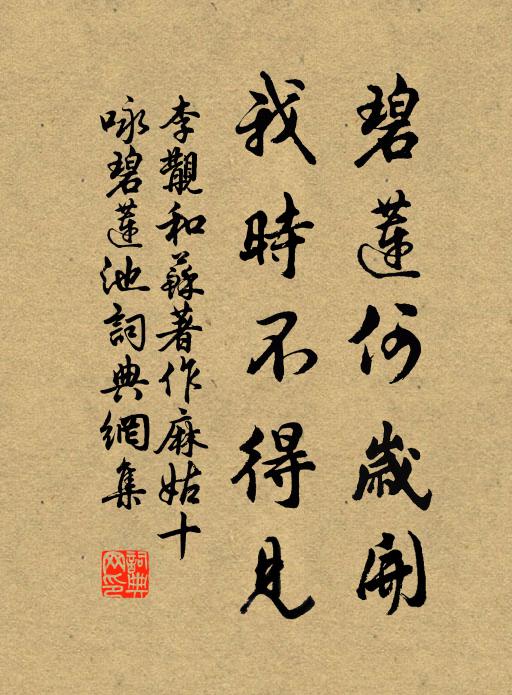 碧蓮何歲開
我時不得見
李覯和蘇著作麻姑十
咏碧蓮池詞典網集
詞典
网印